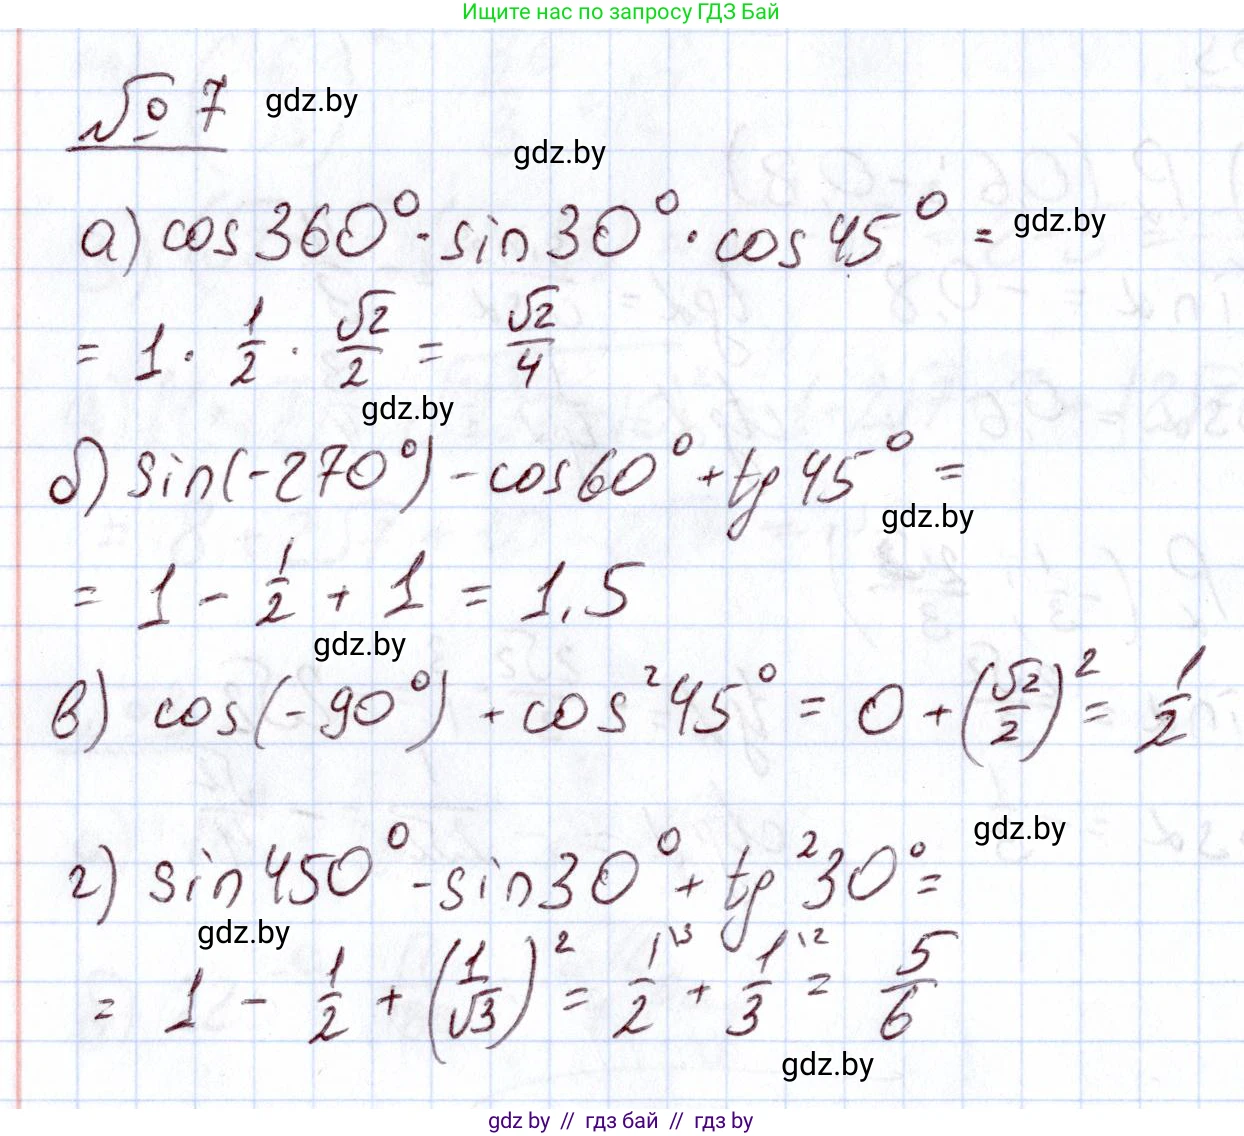 Ищите нас по запросу ГДЗ Бай
№ 7 gdz.by
gdz.by
а) cos 360° · sin 30° · cos 45° = gdz.by
= 1 · 1/2 · √2/2 = √2/4
gdz.by
б) sin(-270°) - cos 60° + tg 45° =
gdz.by
= 1 - 1/2 + 1 = 1,5
gdz.by
в) cos(-90°) + cos²45° = 0 + (√2/2)² = 1/2
gdz.by
г) sin 450° - sin 30° + tg²30° =
gdz.by
= 1 - 1/2 + (1/√3)² = 1\3/2 + 1\2/3 = 5/6
gdz.by
gdz by // гдз бай // гдз by